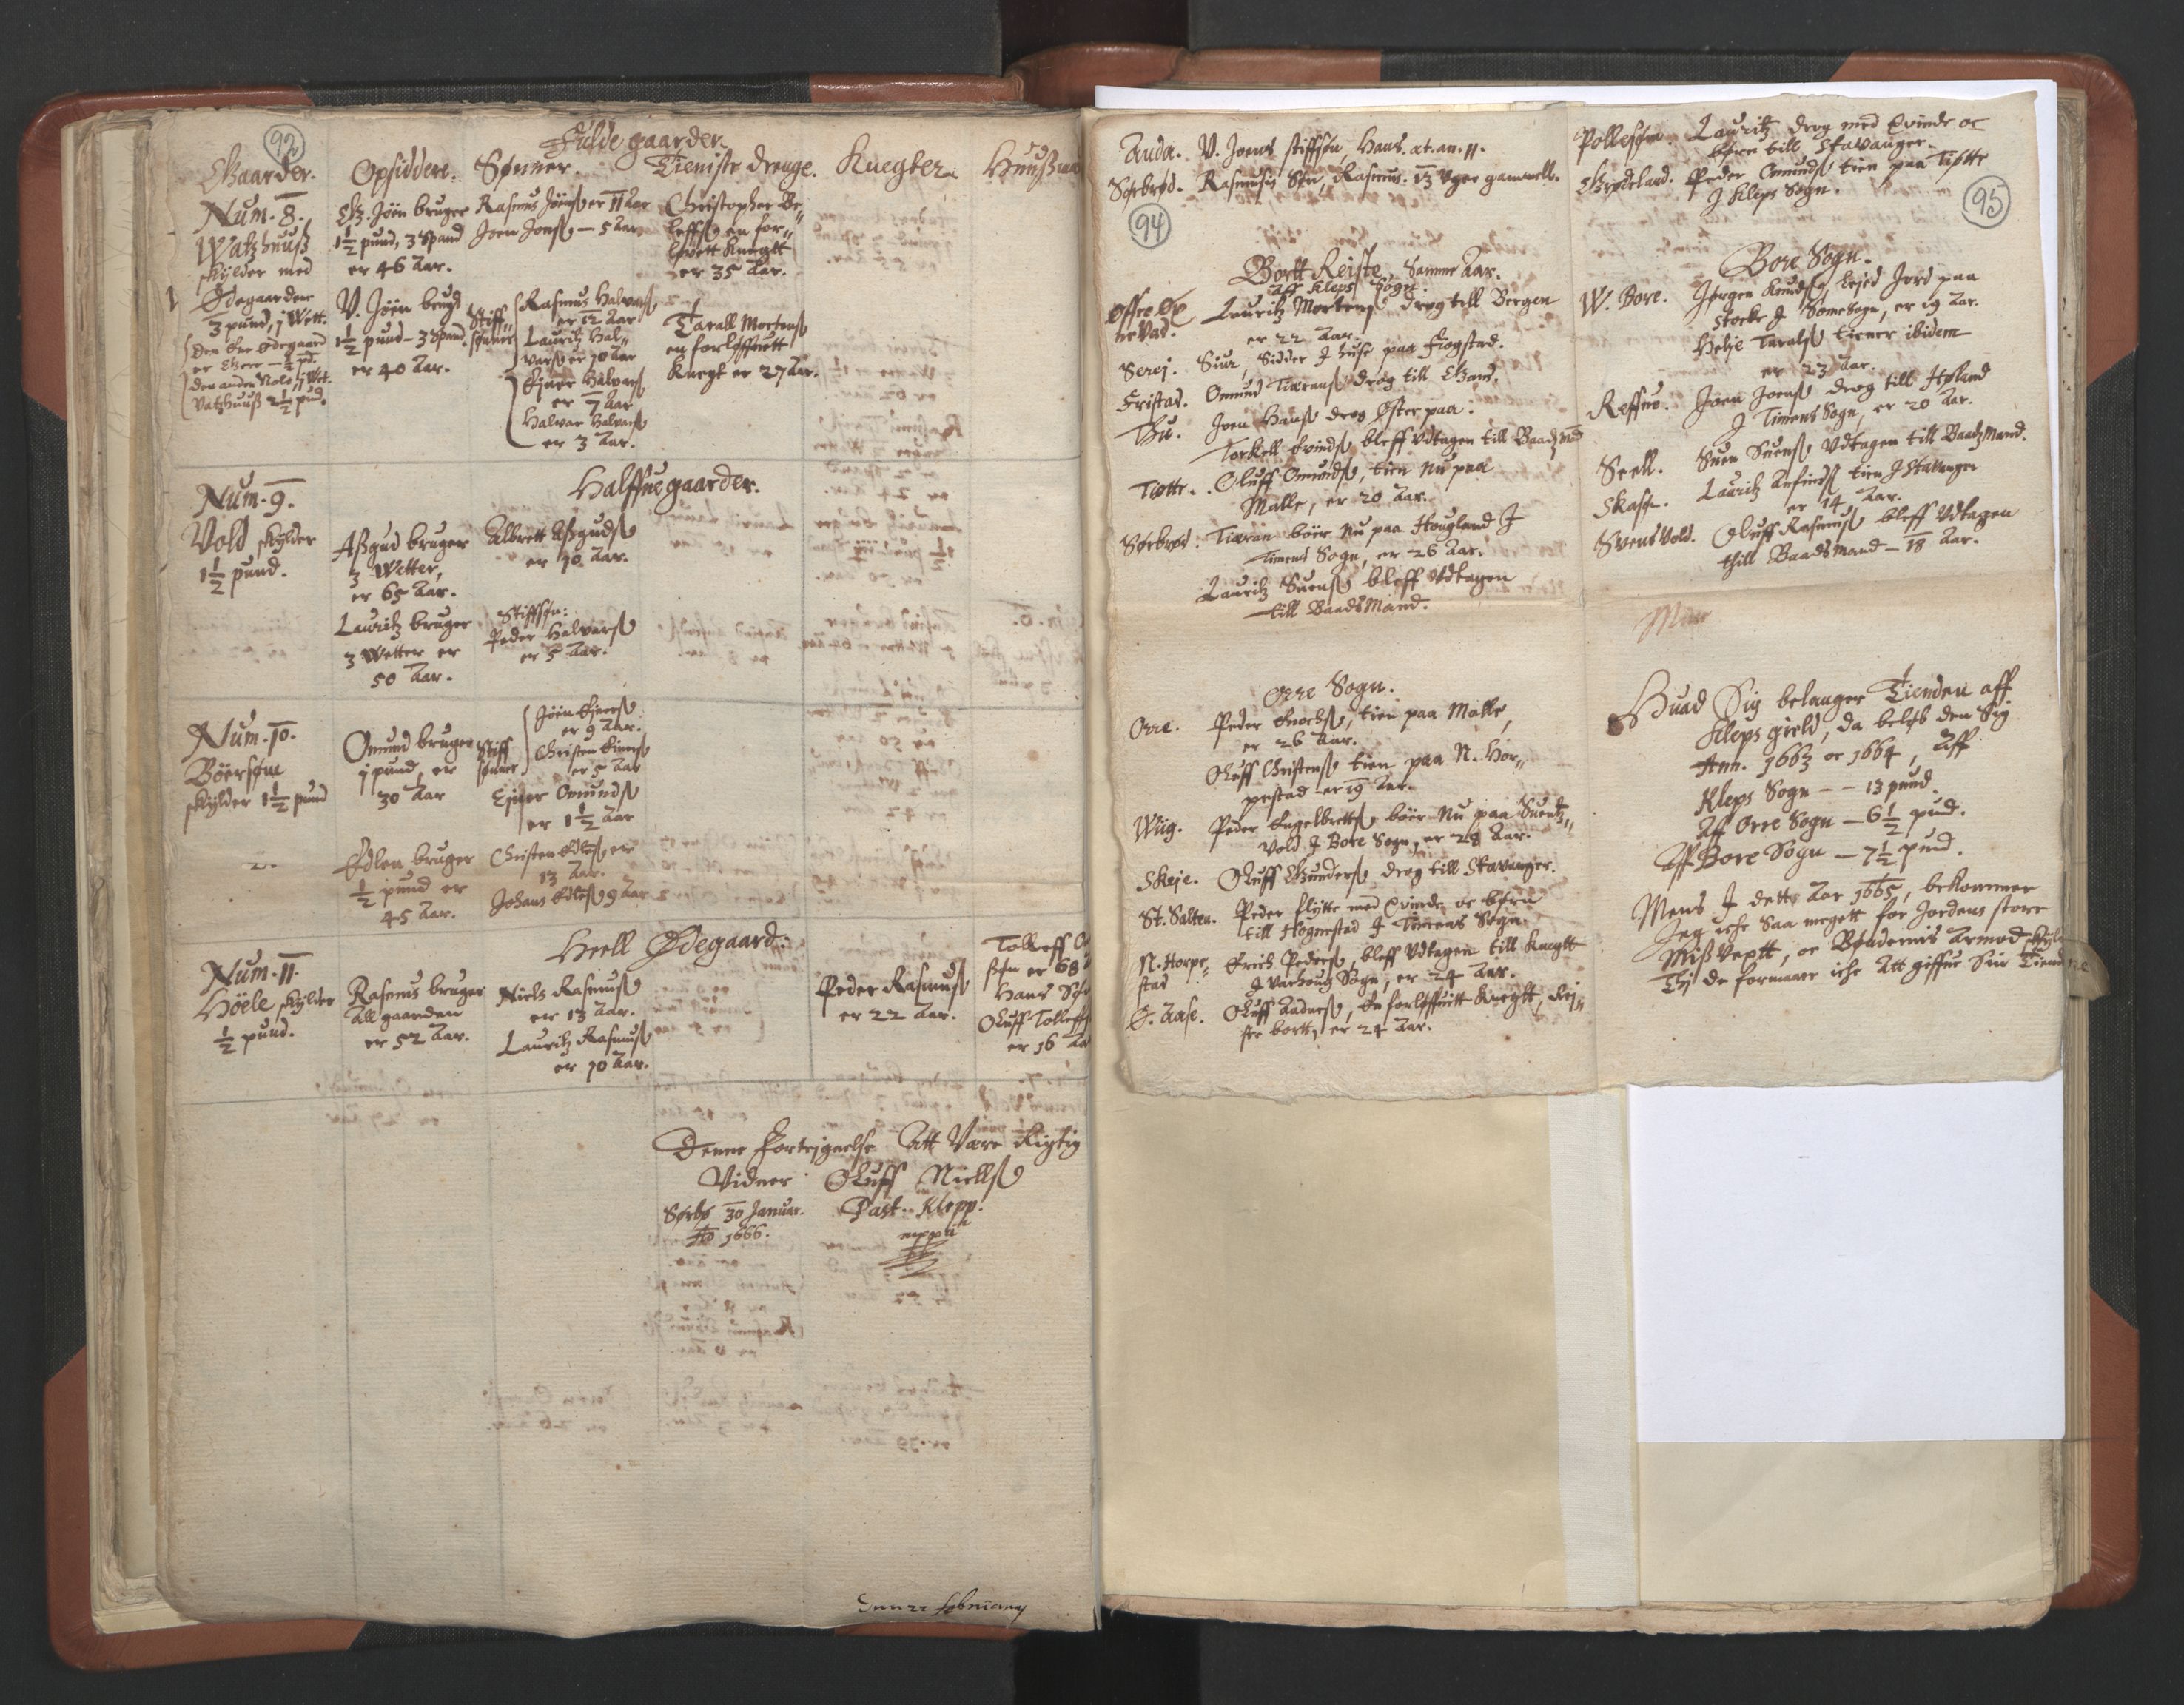 92
Fulde gaarder.
Gaarder. Opsiddere. Sønner. Tieniste drenge. Knegter. Huußm
Num. 8.
Watzhuuß
skylder med
Ødegaarden
3 pund, j Wett.
Den Ene Ødegaard
er
den anden
Vatzhuuß 2 1/2 pud.
G. Jöen bruger
1 1/2 pund, 3 Spand
er 46 Aar.
V. Jöen brugd
1 1/2 pund - 3 Spand.
er 40 Aar.
Rasmus Jöenß er 11 Aar
Joen Jonß - 5 Aar
Stiff„
sønner
Rasmus Halvorß
er 12 Aar
Lauritz Hal„
vorß er 10 Aar
Ejner Halvorß
er 7 Aar
Halvor Halvorß
er 3 Aar.
Christopher De„
leffß en for„
løvett Knegtt
er 35 Aar.
Tarall Mortenß
en forløffvett
Knegt er 27 Aar.
Halffuegaarder.
Num. 9.
Vold skylder
1 1/2 pund.
Aßgud bruger
3 Wetter,
er 65 Aar.
Lauritz bruger
3 Wetter er
50 Aar.
Albrett Aßgudß
er 10 Aar.
Stiffsøn:
Peder Halvorß
er 5 Aar.
Num. 10.
Böersøm
skylder 1 1/2 pund
Omund bruger
j pund, er
30 Aar
Stiff
sønner
Jöen Ejnerß
er 9 Aar.
Christen Einerß
er 5 Aar
Ejner Omundß
er 1 1/2 Aar
Edlen bruger
1/2 pund er
45 Aar.
Christen Edleß er
13 Aar.
Johans Edleß 9 Aar
Heell Ødegaard:
Num. 11.
Höele skylder
1/2 pund.
Rasmus bruger
All gaarden
er 52 Aar.
Niels Rasmuß
er 13 Aar.
Lauritz Rasmuß
er 10 Aar.
Peder Rasmuß
er 22 Aar.
Tolleff
er 68
Hans
Oluff Tolleffß
er 16 Aa
Denne Fortejgnelse Att Være Rigtig
Vidner Oluff Niellß
Sørbø 30 Januar. Past. Klepp.
Ao 1666. mppa
februarij
Auda. V. Joens stiffsøn, Hans. æt. an. 11.
Sørbrød. Rasmusis Søn, Rasmus. 13 Vger gammell.
94
Bortt Reiste, Samme Aar.
Aff Kleps Sogn.
Øffre Øx
nevad.
Lauritz Mortenß drog till Bergen
er 22 Aar.
Serej. Siur, Sidder J huse paa Fiogstad.
Fristad. Omund Tiæranß drog till Gand.
Thu. Joen Hanß drog Øster paa.
Torkell Evindß bleff Vdtagen till Baadzmd
Tiøtte. Oluff Omundß, tien Nu paa
Malle, er 20 Aar.
Sörbrød. Tiæran böer Nu paa Hougland J
Timens Sogn, er 26 Aar.
Lauritz Suenß bleff Vdtagen
till BaadsMand.
Orre Sogn.
Orre. Peder Enochß, tien paa Malle,
er 26 Aar.
Oluff Christenß tien paa N. Hor„
pestad er 19 Aar.
Wiig. Peder Engelbrettß böer Nu paa Suentz„
vold J Bore Sogn, er 28 Aar.
Skeje. Oluff Gunderß drog till Stavanger.
St. Salten. Peder flytte med Qvinde oc børn
till Hognestad J Timens Sogn.
N. Horpe„
stad
Erich Pederß, bleff Vdtagen till Knegtt
J Varhoug Sogn, er 24 Aar.
S. Aase. Oluff Aadnerß, En forløffuitt Knegtt, Rej„
ste bortt, er 24 Aar.
Pollesøm. Lauritz drog med Qvinde oc
børn till Stavanger.
Grødeland. Peder Omundß tien paa Tiøtte
J Kleps Sogn.
95
Bore Sogn.
W. Bore. Jørgen Knudß, lejed Jord paa
Stocke J Somesogn, er 19 Aar.
Helje Taralß tiener ibidem
er 23 Aar.
Reffue. Joen Joenß drog till Høland
J Timens Sogn, er 20 Aar.
Seell. Suen Suenß Vdtagen till BaadzMand.
Skase. Lauritz Anfindß tien J Stavanger
er 14 Aar.
SvensVold. Oluff Rasmuß bleff Vdtagen
thill BaadsMand - 18 Aar.
Huad Sig belanger Tienden aff
Kleps gield, da beløb den Sig
Ann. 1663 oc 1664, Aff
Kleps Sogn - - 13 pund.
Aff Orre Sogn - 6 1/2 pund.
Aff Bore Sogn - 7 1/2 pund.
Mens J dette Aar 1665, bekommer
Jeg iche Saa megett for Jordens store
MißVextt, oc Bøndernis Armod skyld
Thj de formaar iche Att giffue Sin Tiende